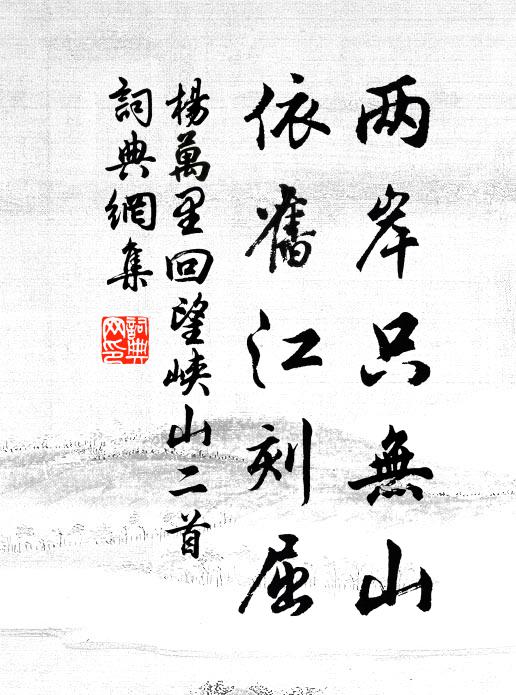 两岸只無山
依舊江刻屈
楊萬里回望峽山二首
詞典網集
詞典网印